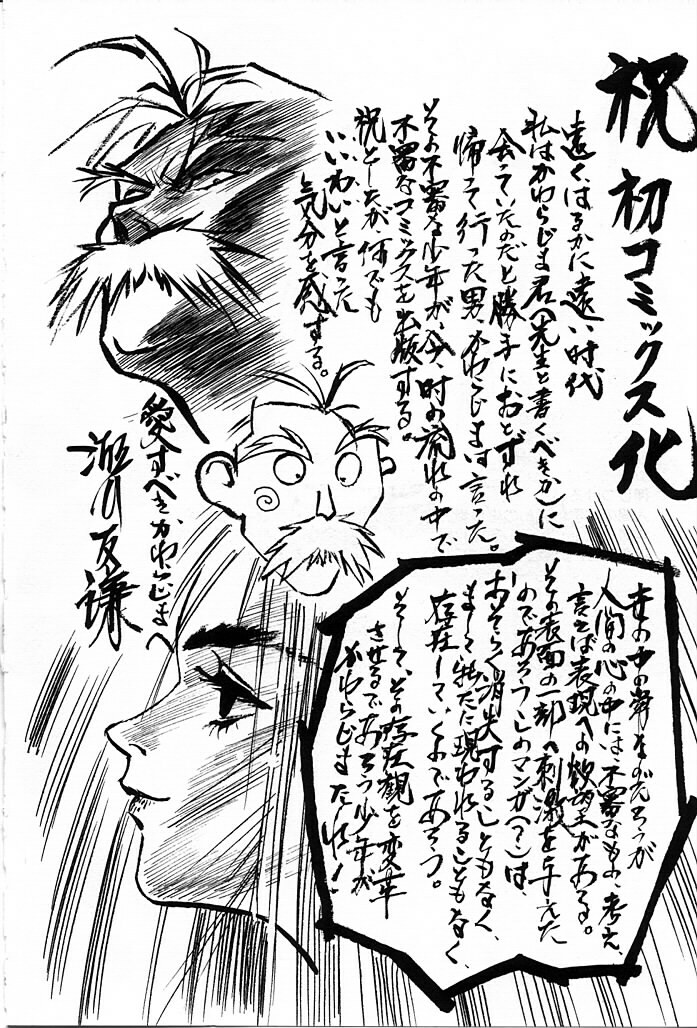 祝 初コミックス化
遠く、はるかに遠い時代
私はかわらじま君(先生と書くべきか)に
会っていたのだと勝手におとずれ
帰って行った男、かわらじまは言った。
その不審な少年が、今、時の流れの中で
不審なコミックスを出版する。
祝としたが何でも
いいわいと言った
気分を感ずる。
愛すべきかわらじまへ
世の中の常そのだろうが
人間の心の中には不審なもの、考え、
言わば表現への欲望がある。
その表面の一部へ刺激を与えた
のであろうこのマンガ(?)は、
おそらく消失することもなく、
まして新たに現われることもなく、
存在していくのであろう。
そして、その存在観を変革
させるであろう少年が
かわらじまだ!